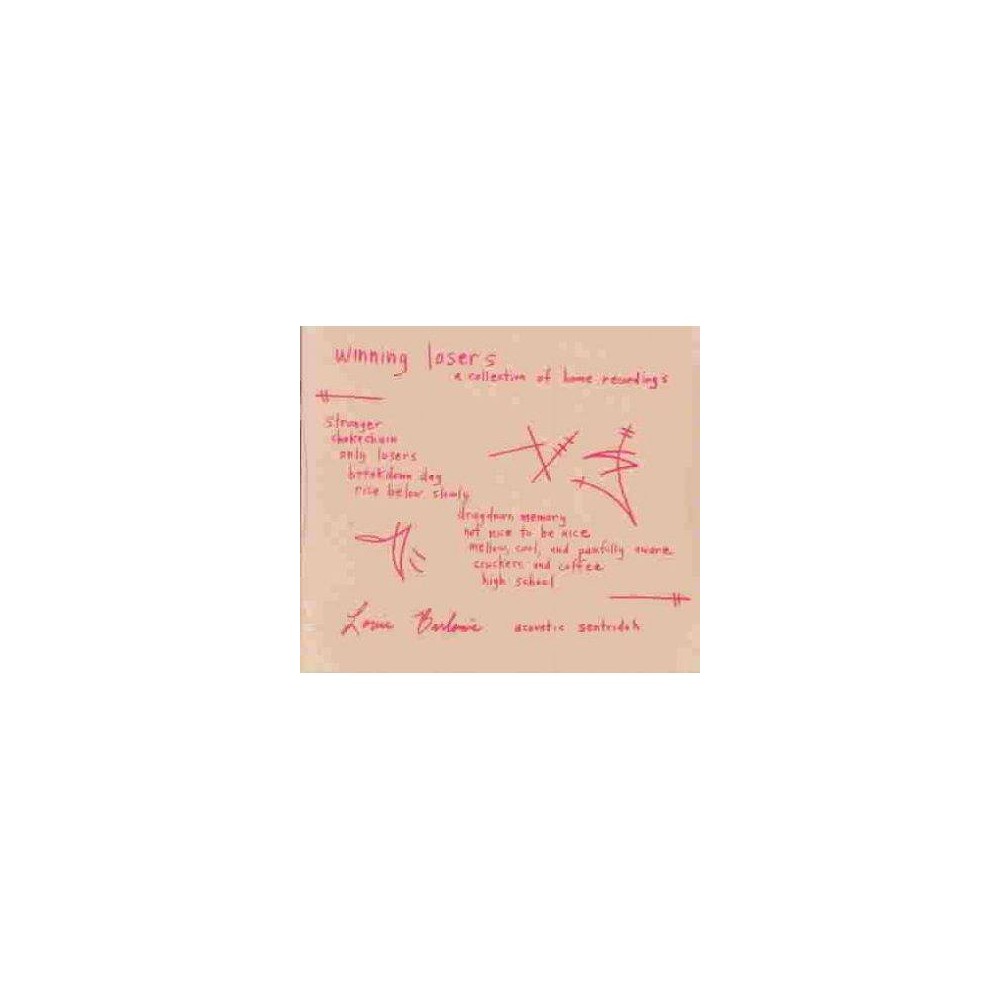 winning losers
a collection of home recordings
stranger
chokechain
only losers
breakdown day
rise below slowly
dragdown memory
not nice to be nice
mellow, cool, and painfully aware
crackers and coffee
high school
Louie Barlowie acoustic sentridoh